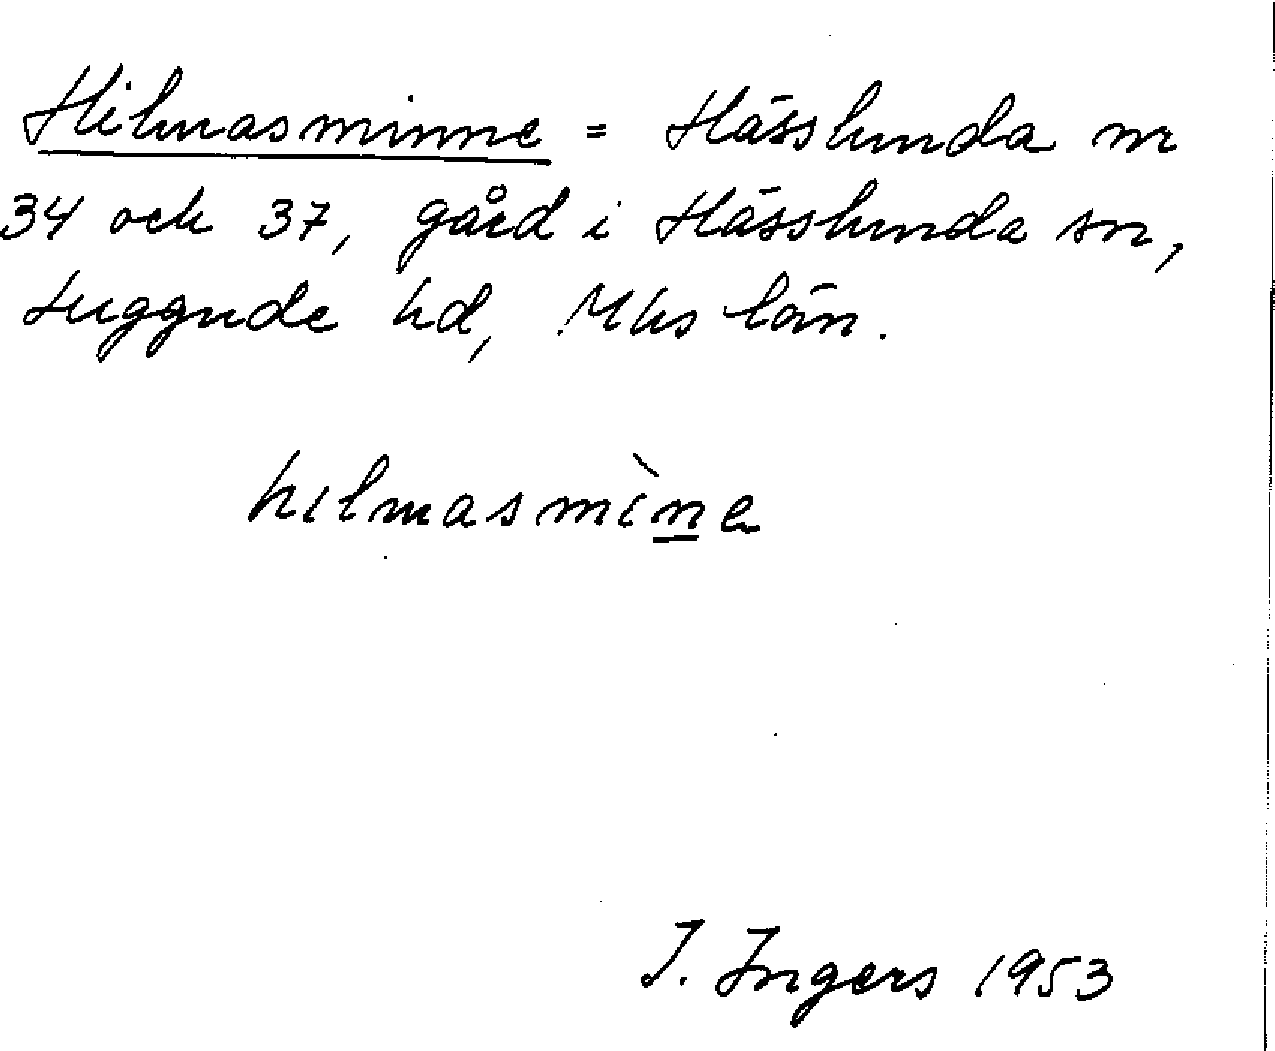 Hilmasminne = Hässlunda nr
34 och 37, gård i Hässlunda sn,
Luggude hd, Mhs län.
hilmasmìne
I. Ingers 1953